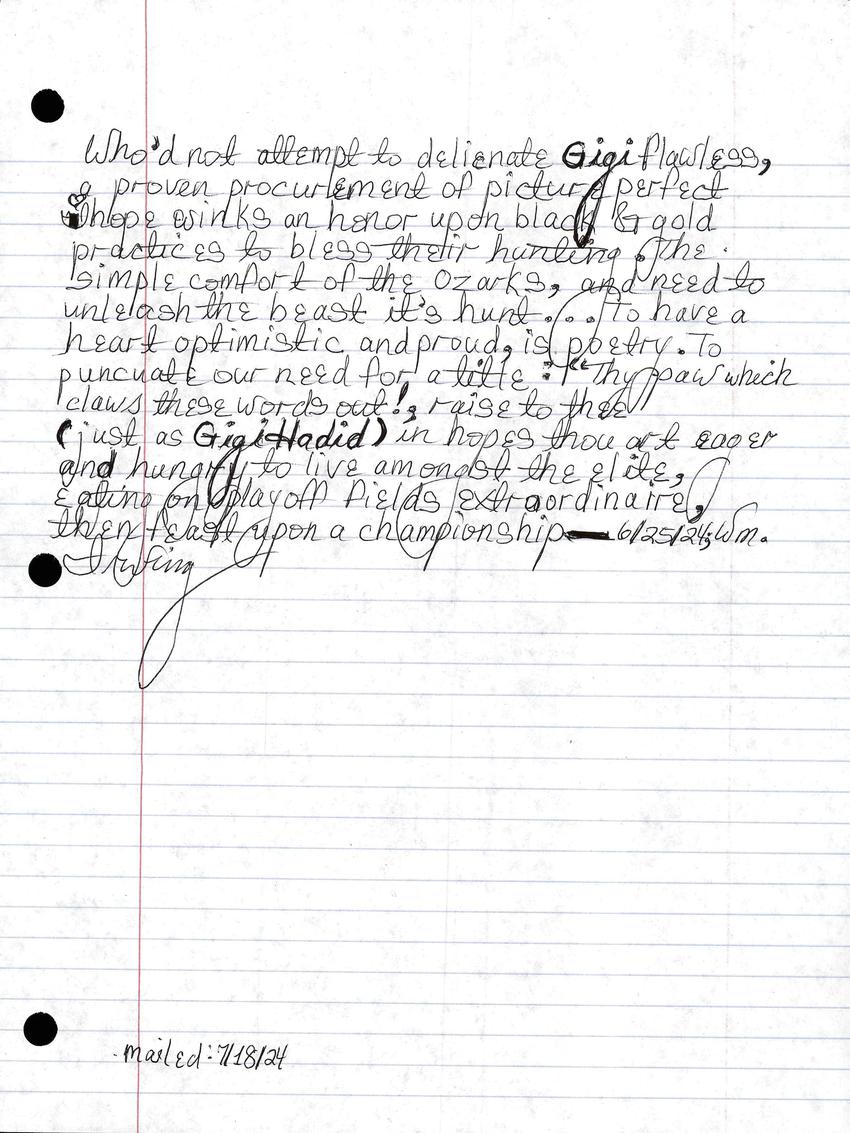 Who'd not attempt to delienate Gigi flawless,
a proven procurlement of picture perfect
hope winks an honor upon black & gold
practices to bless their hunting. The
simple comfort of the Ozarks, and need to
unleash the beast it's hunt.... To have a
heart optimistic and proud, is poetry. To
puncuate our need for a title: "Thy paw which
claws these words out!, raise to thee
(just as Gigi Hadid) in hopes thou art eager
and hungry to live amongst the elite,
eating on playoff fields extraordinaire,
then feast upon a championship — 6/25/24; Wm.
Irving
mailed: 7/18/24